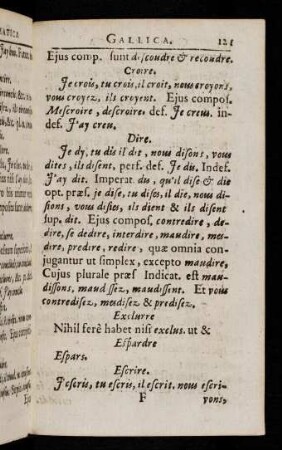 GALLICA. 121
Ejus comp. sunt discoudre & recoudre.
Croire.
Je crois, tu crois, il croit, nous croyons,
vous croyez, ils croyent. Ejus compos.
Mescroire, descroire. def. Je creus. in-
def. J'ay creu.
Dire.
Je dy, tu dis il dit, nous disons, vous
dites, ils disent. perf. def. Je dis. Indef.
J'ay dit. Imperat. dis, qu'il dise & die
opt. præs. je dise, tu dises, il die, nous di-
sions, vous disies, ils dient & ils disent
sup. dit. Ejus compos. contredire, de-
dire, se dedire, interdire, maudire, mes-
dire, predire, redire, quæ omnia con-
jugantur ut simplex, excepto maudire,
Cujus plurale præs Indicat. est mau-
dissons, maudissez, maudissent. Et vous
contredisez, mesdisez & predisez.
Exclurre
Nihil ferè habet nisi exclus. ut &
Espardre
Espars.
Escrire.
Jescris, tu escris, il escrit. nous escri-
F yons,